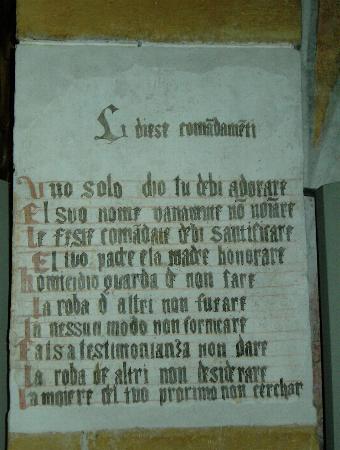 Li diese comãdamēti
Uno solo dio tu debi adorare
El suo nome vanamente nō noīare
Le feste comādate debi santificare
El tuo padre ela madre honorare
Homicidio guarda de non fare
La roba d altri non furare
In nessun modo non fornicare
Falsa testimonianza non dare
La roba de altri non desiderare
La moiere del tuo proximo non cerchar